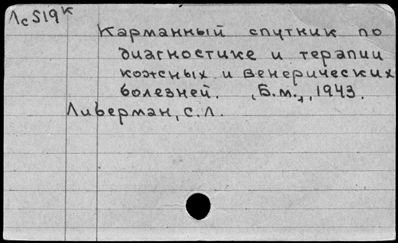 ЛсS19К
Карманный спутник по
диагностике и терапии
кожных и венерических
болезней. [Б.м.], 1943.
Ливерман, С.Л.